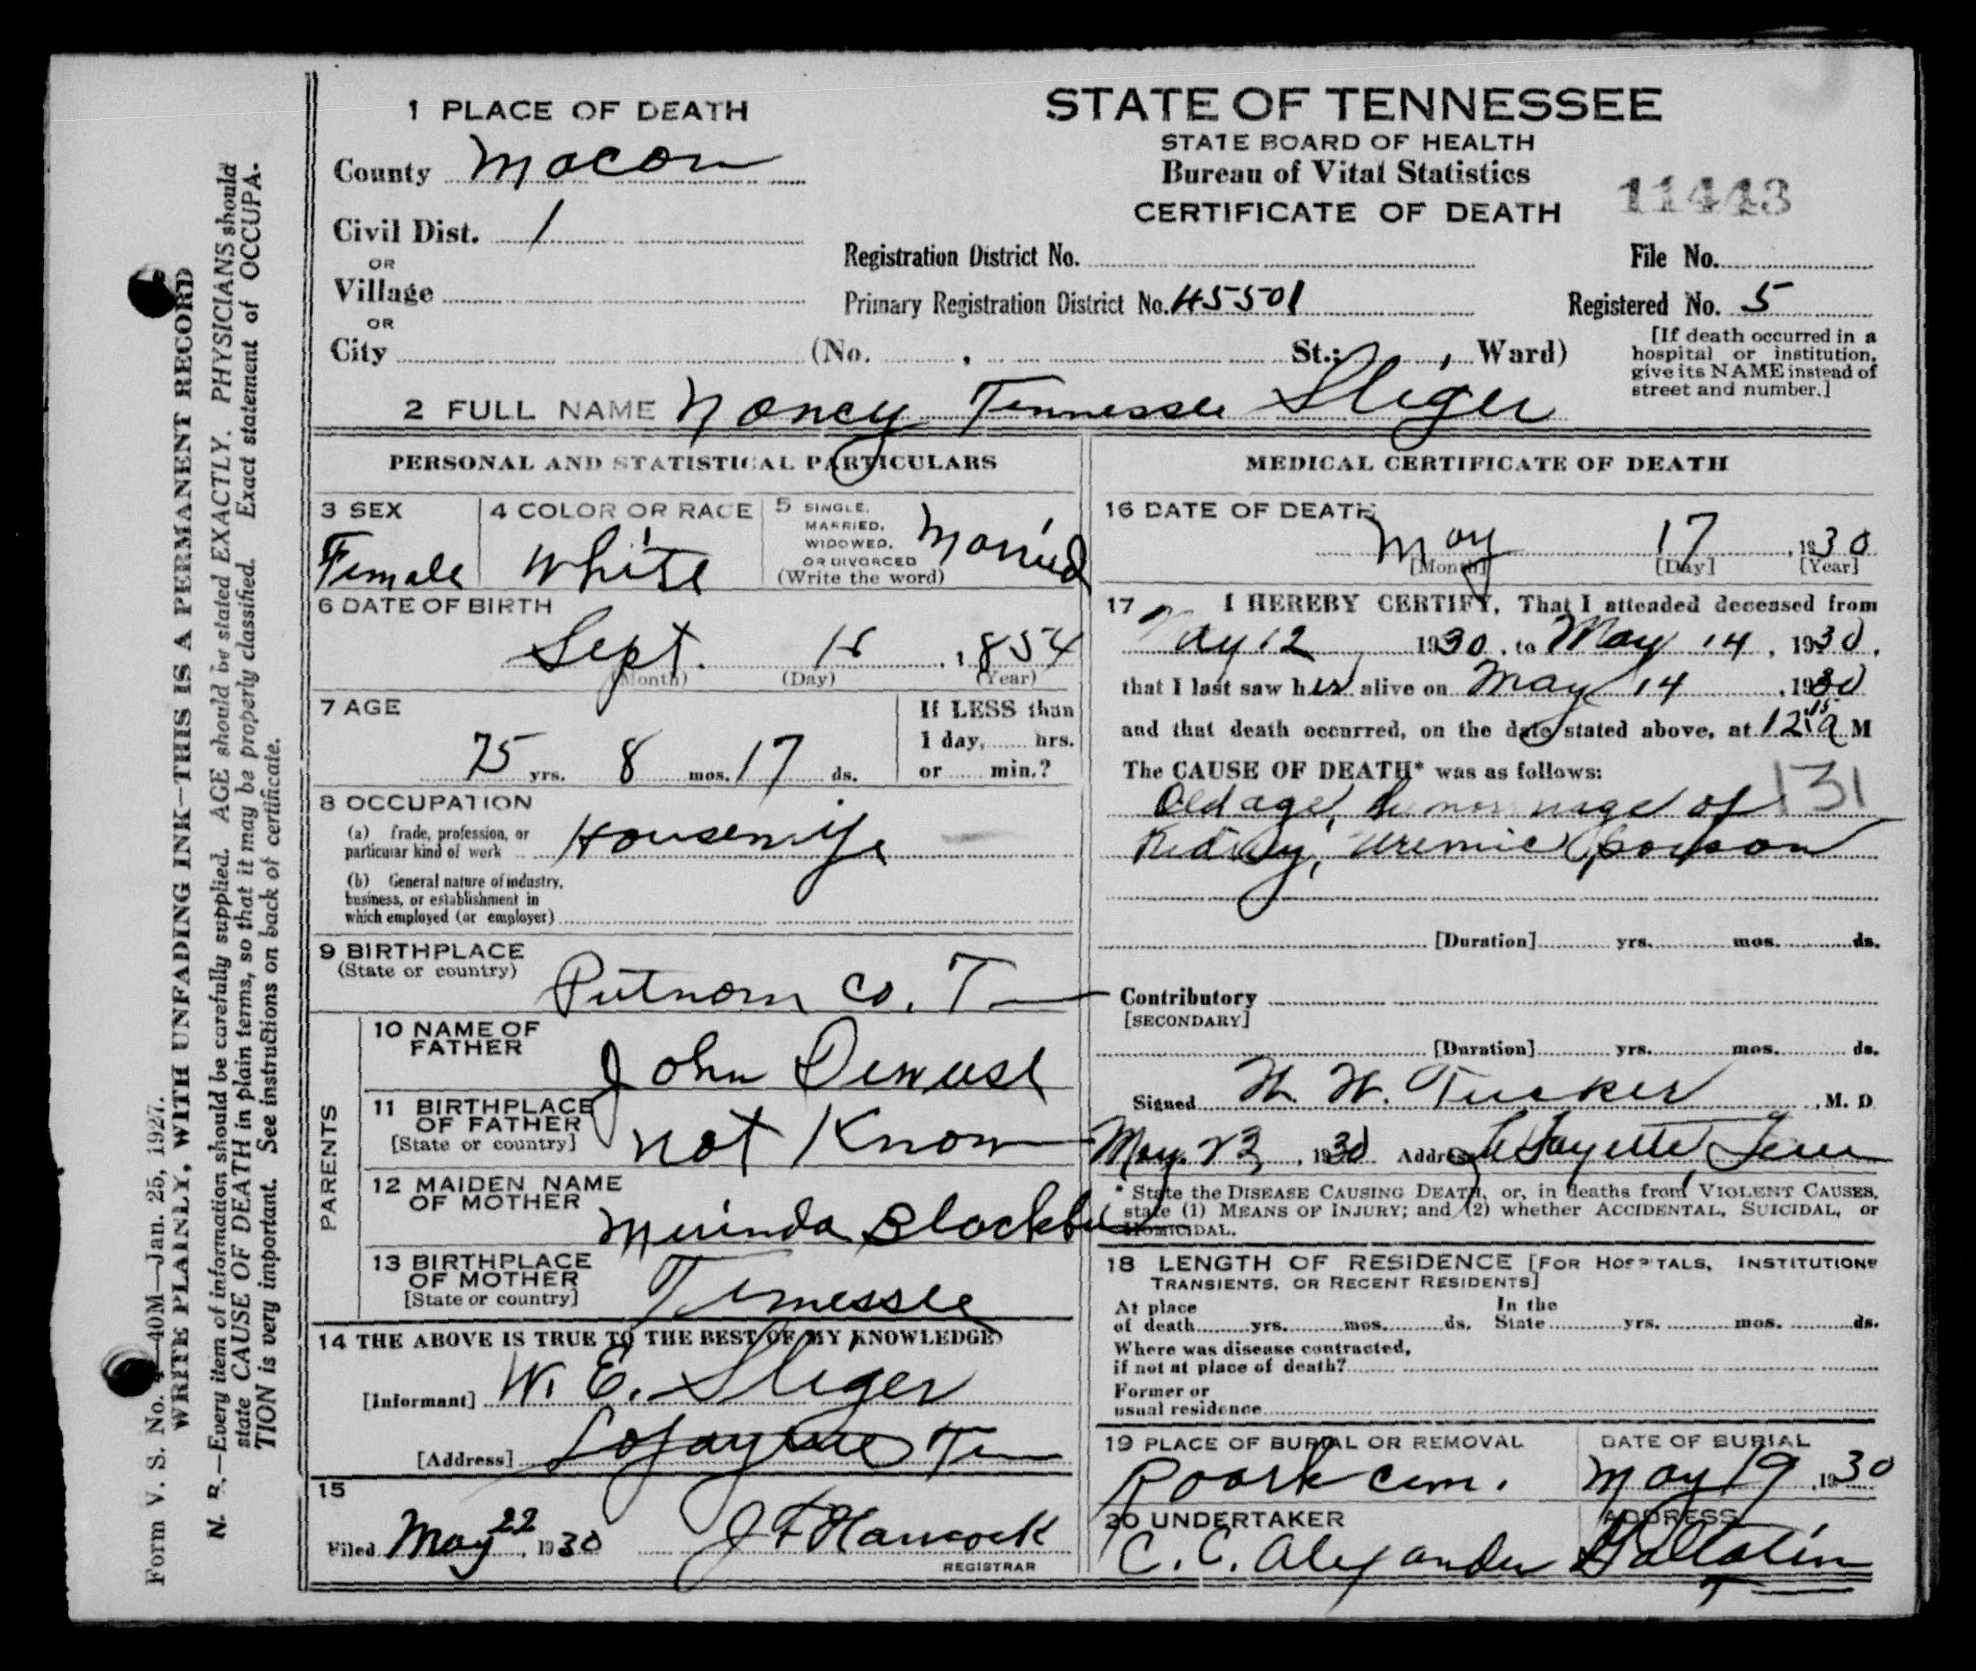 1 PLACE OF DEATH
County Macon
Civil Dist. 1
OR
Village
OR
City (No. , St.; , Ward)
STATE OF TENNESSEE
STATE BOARD OF HEALTH
Bureau of Vital Statistics
CERTIFICATE OF DEATH
11443
Registration District No. File No.
Primary Registration District No. 45501 Registered No. 5
[If death occurred in a
hospital or institution,
give its NAME instead of
street and number.]
2 FULL NAME Nancy Tennessee Sliger
PERSONAL AND STATISTICAL PARTICULARS
3 SEX
Female
4 COLOR OR RACE
White
5 SINGLE,
MARRIED,
WIDOWED,
OR DIVORCED
(Write the word)
Married
6 DATE OF BIRTH
Sept. , 1854
(Month) (Day) (Year)
7 AGE
75 yrs. 8 mos. 17 ds.
If LESS than
1 day, hrs.
or min.?
8 OCCUPATION
(a) Trade, profession, or
particular kind of work Housewife
(b) General nature of industry,
business, or establishment in
which employed (or employer)
9 BIRTHPLACE
(State or country)
Putnam Co. T
PARENTS
10 NAME OF
FATHER
John
11 BIRTHPLACE
OF FATHER
[State or country]
not Know
12 MAIDEN NAME
OF MOTHER
13 BIRTHPLACE
OF MOTHER
[State or country]
Tennessee
14 THE ABOVE IS TRUE TO THE BEST OF MY KNOWLEDGE
[Informant] W. E. Sliger
[Address] Lafayette Tn
15
Filed May 22, 1930 J F Hancock
REGISTRAR
MEDICAL CERTIFICATE OF DEATH
16 DATE OF DEATH
May 17, 1930
[Month] [Day] [Year]
17 I HEREBY CERTIFY, That I attended deceased from
May 12 1930, to May 14, 1930,
that I last saw her alive on May 14, 1930
and that death occurred, on the date stated above, at 12 15 a M
The CAUSE OF DEATH* was as follows:
131
Old age, hemorrhage of
Kidney, Uremic poison
[Duration] yrs. mos. ds.
Contributory
[SECONDARY]
[Duration] yrs. mos. ds.
Signed W. Tucker, M. D
May 23, 1930 Address Lafayette, Tenn
* State the DISEASE CAUSING DEATH, or, in deaths from VIOLENT CAUSES,
state (1) MEANS OF INJURY; and (2) whether ACCIDENTAL, SUICIDAL, or
HOMICIDAL.
18 LENGTH OF RESIDENCE [FOR HOSPITALS, INSTITUTIONS
TRANSIENTS, OR RECENT RESIDENTS]
At place
of death yrs. mos. ds.
In the
State yrs. mos. ds.
Where was disease contracted,
if not at place of death?
Former or
usual residence
19 PLACE OF BURIAL OR REMOVAL
Roark cem.
DATE OF BURIAL
May 19, 1930
20 UNDERTAKER
C. C. Alexander
ADDRESS
Gallatin
T
Form V. S. No. 4—40M—Jan. 25, 1927.
WRITE PLAINLY, WITH UNFADING INK—THIS IS A PERMANENT RECORD
N. B.—Every item of information should be carefully supplied. AGE should be stated EXACTLY. PHYSICIANS should
state CAUSE OF DEATH in plain terms, so that it may be properly classified. Exact statement of OCCUPA-
TION is very important. See instructions on back of certificate.